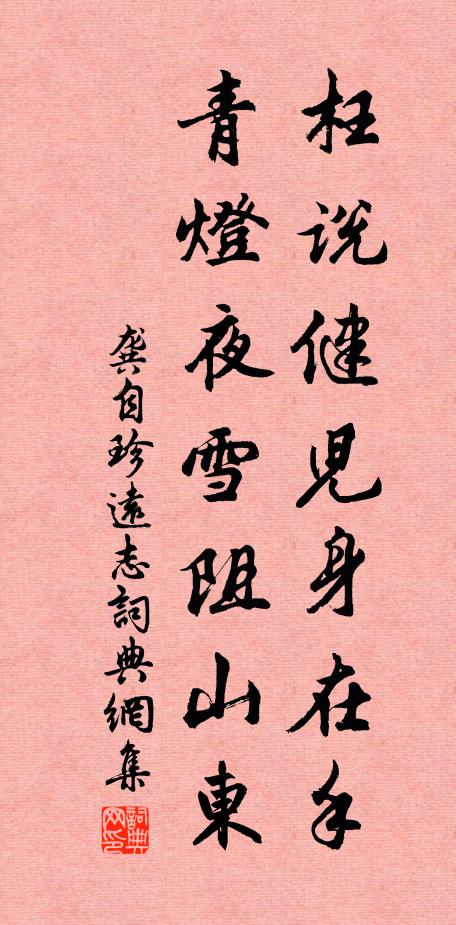 枉説健児身在手
青燈夜雪阻山東
龔自珍遠志詞典網集
詞典网印